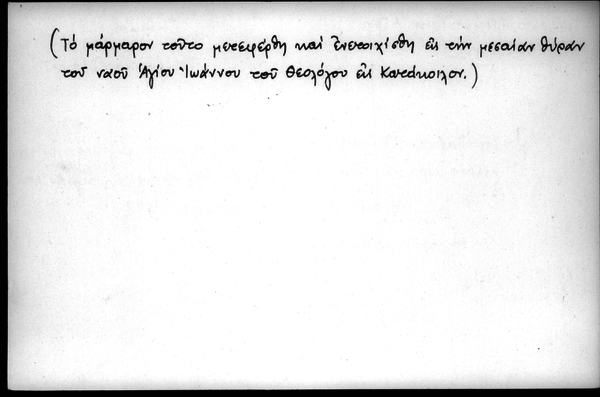 (Τό μάρμαρον τοῦτο μετεφέρθη καί ἐνετοιχίσθη εἰς τήν μεσαίαν θύραν
τοῦ ναοῦ Ἁγίου Ἰωάννου τοῦ Θεολόγου εἰς Κατάκοιλον.)